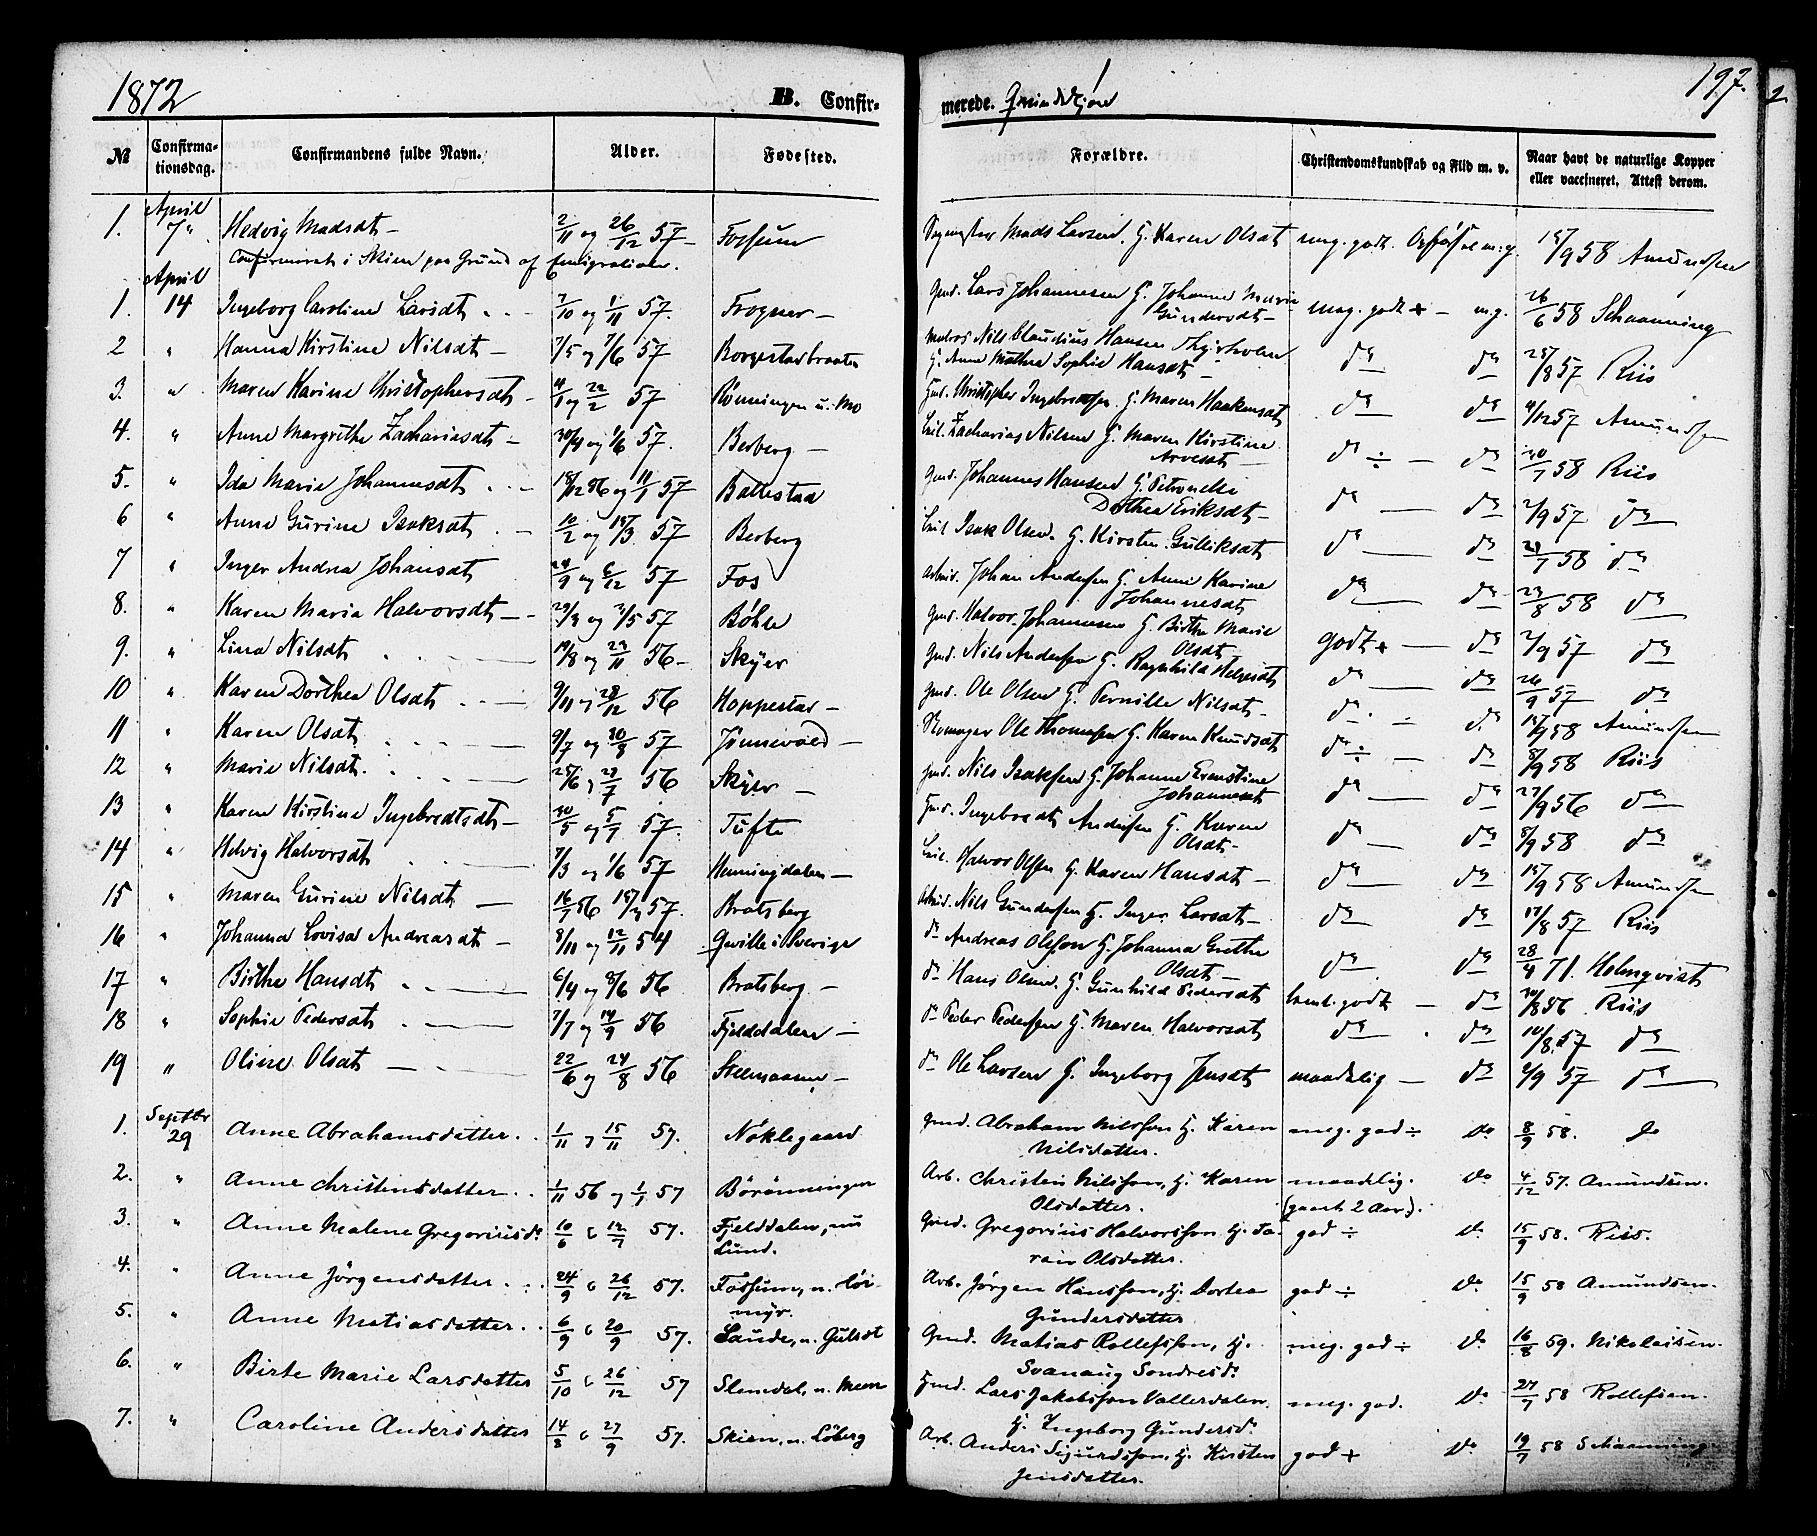 1872 B. Confirmerede. Qvindekjøn 197.
№ Confirmationsdag. Confirmandens fulde Navn. Alder. Fødested. Forældre. Christendomskundskab og Flid m. v. Naar havt de naturlige Kopper eller vaccineret, Attest derom.
1. April 7 Hedvig Madsdt 2/11 og 26/12 57 Fossum Mads Larsen, H. Karen Olsdt meg. godt. 15/9 58 Amundsen
Confirmeret i Skien paa Grund af Emigration.
1. April 14 Ingeborg Caroline Larsdt 7/10 og 1/11 57. Frogner Gmd. Lars Johannesen H. Johanne Marie Gundersdt meg. godt + m.g. 26/6 58 Schanning
2 " Hanna Kirstine Nilsdt 7/5 og 7/6 57 Borgestadbraaten Nils Claudius Hansen Thyrholm H. Anne Mathea Sophie Hansdt do do 25/8 57 Riis
3. " Maren Karine Christophersdt 4/1 og 22/2 57 Rönningen u. Mo Gmd. Christopher Ingebretsen H. Maren Haakensdt do do 4/12 57 Amundsen
4. " Anne Margrethe Zachariasdt 30/4 og 1/6 57. Berberg Zacharias Nilsen H. Maren Kirstine Arvesdt do ÷ do 20/7 58 Riis
5. " Ida Marie Johannesdt 18/12 56 og 11/1 57 Ballestad Gmd. Johannes Hansen H. Petronelle Dorthea Eriksdt do do 2/9 57 do
6 " Anne Gurine Isaksdt 10/2 og 15/3 57 Berberg Isak Olsen H. Kirsten Gulliksdt do do 23/7 58 do
7 " Inger Andrea Johansdt 29/9 og 6/12 57 Fos Arbeid. Johan Andersen H. Anne Karine Johannesdt do do 23/8 58 do
8. " Karen Maria Halvorsdt 29/3 og 21/5 57 Böhle Gmd. Halvor Johannesen H. Birthe Marie Olsdt godt + do 2/9 57 do
9. " Lina Nilsdt 19/8 og 23/11 56 Skyer Gmd. Nils Andersen H. Ragnhild Helgesdt do do 26/9 57 do
10 " Karen Dorthea Olsdt 9/11 og 28/12 56 Hoppestad Gmd. Ole Olsen H. Pernille Nilsdt do ÷ do 15/9 58 Amundsen
11 " Karen Olsdt 9/7 og 30/8 57 Jönnevald Skomager Ole Thomesen H. Karen Knudsdt do ÷ do 8/9 58 Riis
12 " Marie Nilsdt. 25/6 og 27/7 56 Skyer Gmd. Nils Isaksen H. Johanne Ernstine Johannesdt do do 27/9 56 do
13 " Karen Kirstine Ingebretsdt 30/5 og 5/7 57. Tufte Gmd. Ingebredt Andersen H. Karen Olsdt do do 8/9 58 do
14 " Helvig Halvorsdt 7/3 og 1/6 57 Henningdalen Halvor Olsen H. Karen Hansdt do do 15/9 58 Amundsen
15 " Maren Gurine Nilsdt 16/7 56 15/3 57. Bratsberg Arbeid. Nils Gundersen H. Inger Larsdt do do 17/8 57 Riis
16 " Johanna Lovisa Andreasdt 8/11 og 12/11 54 Gerville i Sverige do Andreas Olsson H. Johanna Grethe Olsdt do do 28/4 71. Holmqvist
17 " Birthe Hansdt 6/4 og 8/6 56 Bratsberg do Hans Olsen H. Gunhild Pedersdt temt. godt do 30/8 56 Riis
18 " Sophie Pedersdt 7/7 og 14/9 56 Fjelddalen do Peder Pedersen H. Maren Halvorsdt do do 10/8 57 do
19 " Oline Olsdt 22/6 og 24/8 56 Stelmaasen do Ole Larsen H. Ingeborg Jensdt maadelig do 2/9 57 do
1. Septbr 29 Anne Abrahamsdatter 1/11 og 15/11 57. Nöklegaard Gmd. Abraham Nilssen H. Karen Nilsdatter. meg. god ÷ do 8/9 58. do
2. " Anne Christensdatter 1/11 56 og 1/1 57 Börönningen Arb. Christen Nilsson, H. Karen Olsdatter. maadelig. (gaaet 2 Aar). do 4/12 57. Amundsen.
3. " Anne Malene Gregoriusd. 10/6 & 12/7 57. Fjelddalen, nu Lund. Gmd. Gregorius Halvorsson H. Taran Olsdatter. god ÷ do 15/9 58. Riis.
4. " Anne Jörgensdatter 24/9 & 26/12 57. Fossum, n. Törmyr. Arb. Jörgen Hansson, H. Dortea Gundersdatter god ÷ do 15/9 58 Amundsen.
5. " Anne Matiasdatter 6/9 & 20/9 57. Laude, n. Gulset Gmd. Matias Rollefsson, H. Svanaug Sondresd. meg. god ÷ do 16/8 59. Nikolaisen.
6. " Birte Marie Larsdatter 5/10 & 26/12 57 Slemdal, n. Mæen Gmd. Lars Jakobsson Vallerdalen. H. Ingeborg Gundersd. meg. god. do 27/7 58 Rollefsen.
7. " Caroline Andersdatter 14/8 & 27/9 57. Skien, n. Löberg Arb. Anders Sigurdsson, H. Kirsten Jensdatter. god + do 19/7 58 Schanning